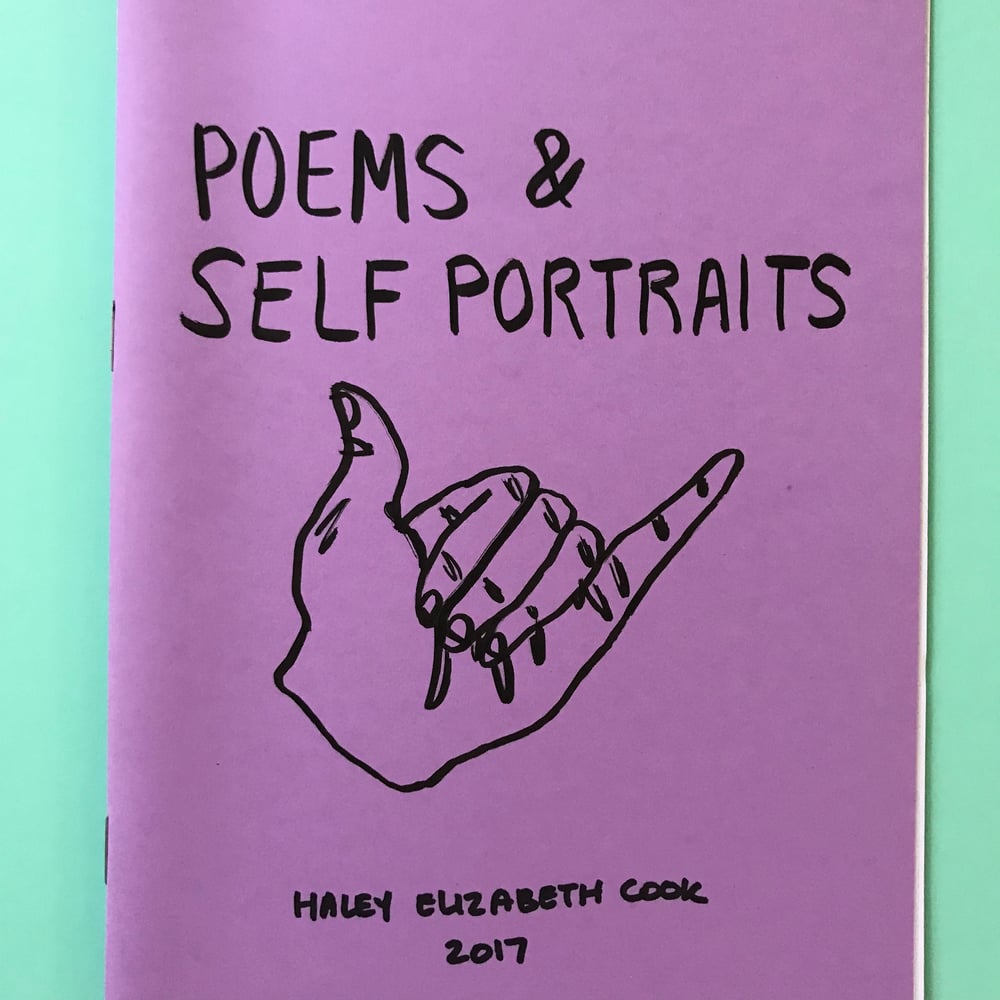 POEMS &
SELF PORTRAITS
HALEY ELIZABETH COOK
2017